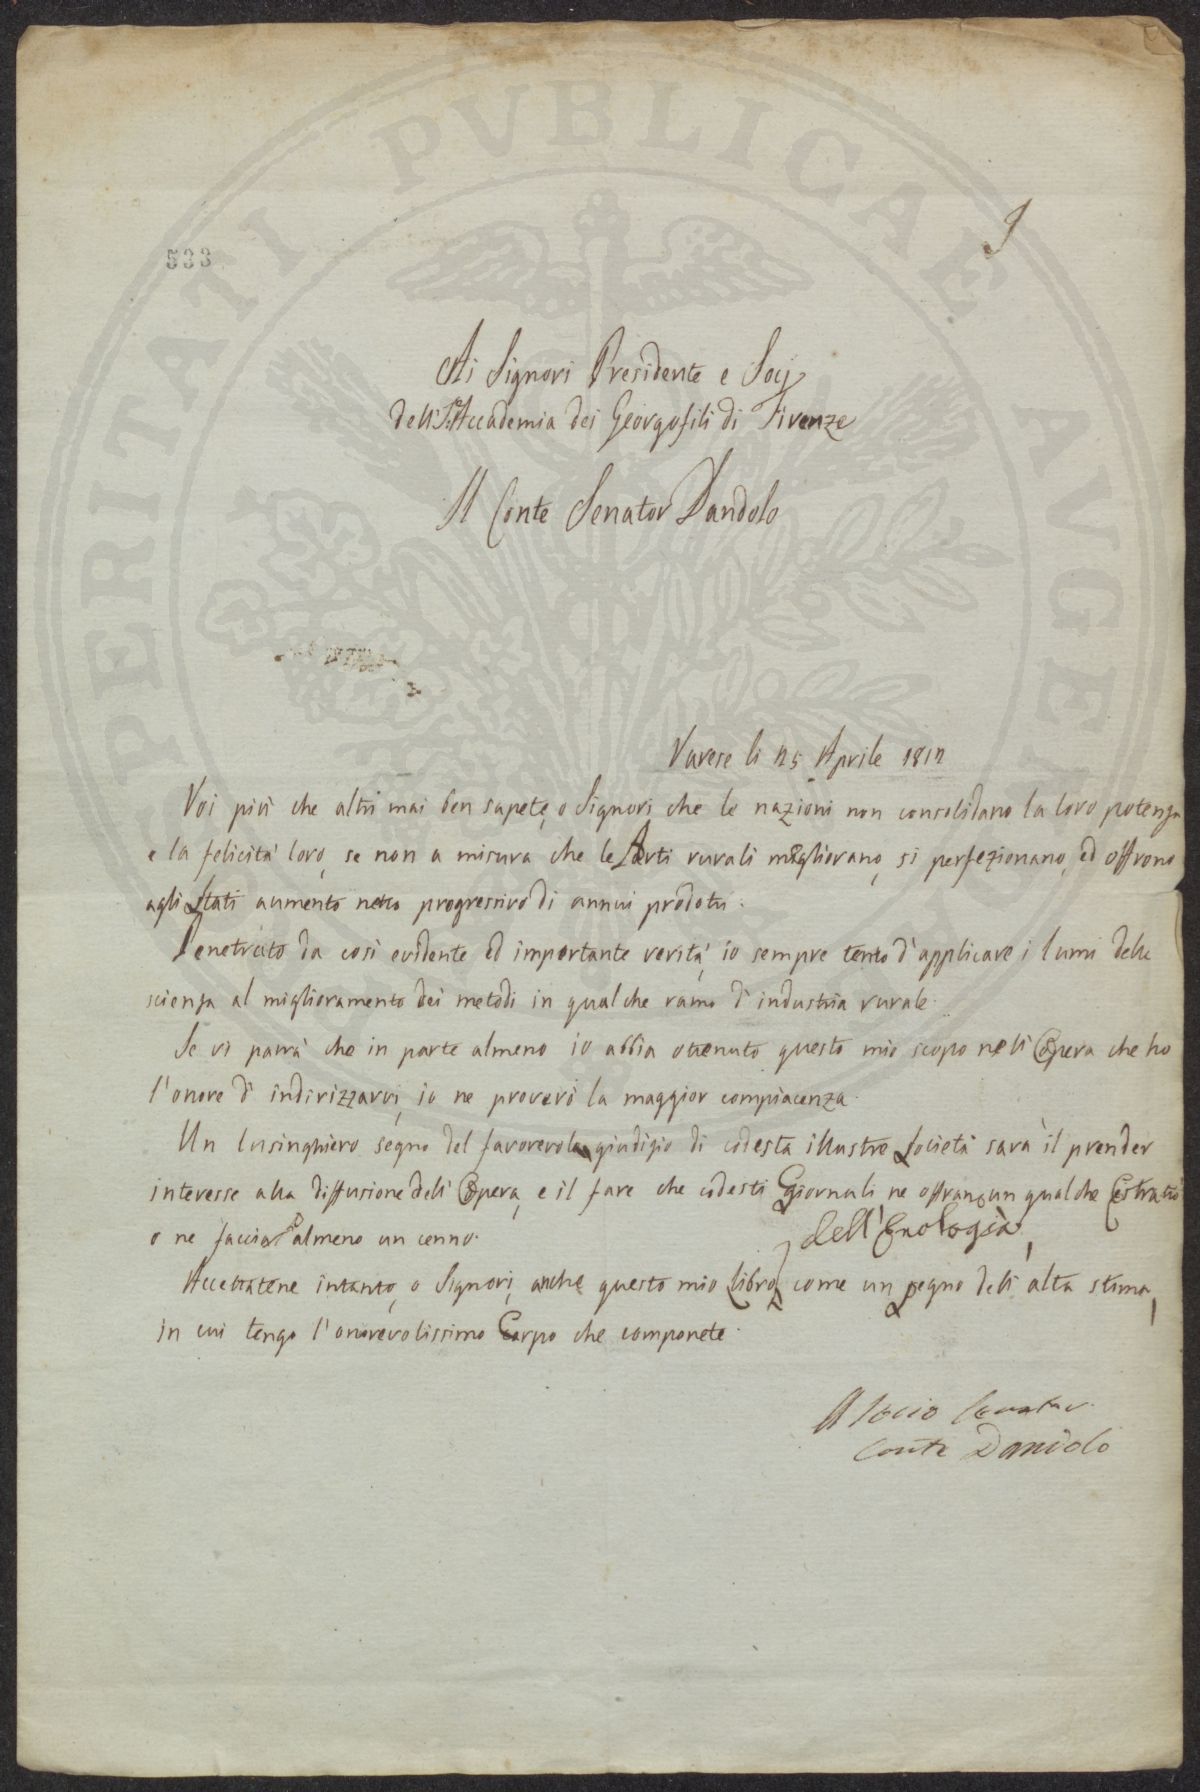 PROSPERITATI PVBLICAE AVGENDAE
533
Ai Signori Presidente e Socij
dell'I. Accademia dei Georgofili di Firenze
Il Conte Senator Dandolo
Varese li 25 Aprile 1812
Voi più che altri mai ben sapete, o Signori, che le nazioni non consolidano la loro potenza
e la felicità loro, se non a misura che le Arti rurali migliorano, si perfezionano, ed offrono
agli Stati aumento netto progressivo di annui prodotti.
Penetrato da così evidente ed importante verità, io sempre tento d'applicare i lumi delle
scienza al miglioramento dei metodi in qualche ramo d'industria rurale.
Se vi parrà che in parte almeno io abbia ottenuto questo mio scopo nell'Opera che ho
l'onore di indirizzarvi, io ne proverò la maggior compiacenza.
Un lusinghiero segno del favorevole giudizio di codesta illustre Società sarà il prender
interesse alla diffusione dell'Opera, e il fare che codesti Giornali ne offrano un qualche Estratto
o ne faccia almeno un cenno.
dell'Enologia,
Accettatene intanto, o Signori, anche questo mio Libro come un pegno dell'alta stima,
in cui tengo l'onorevolissimo Corpo che componete.
Il Socio Senator
Conte Dandolo